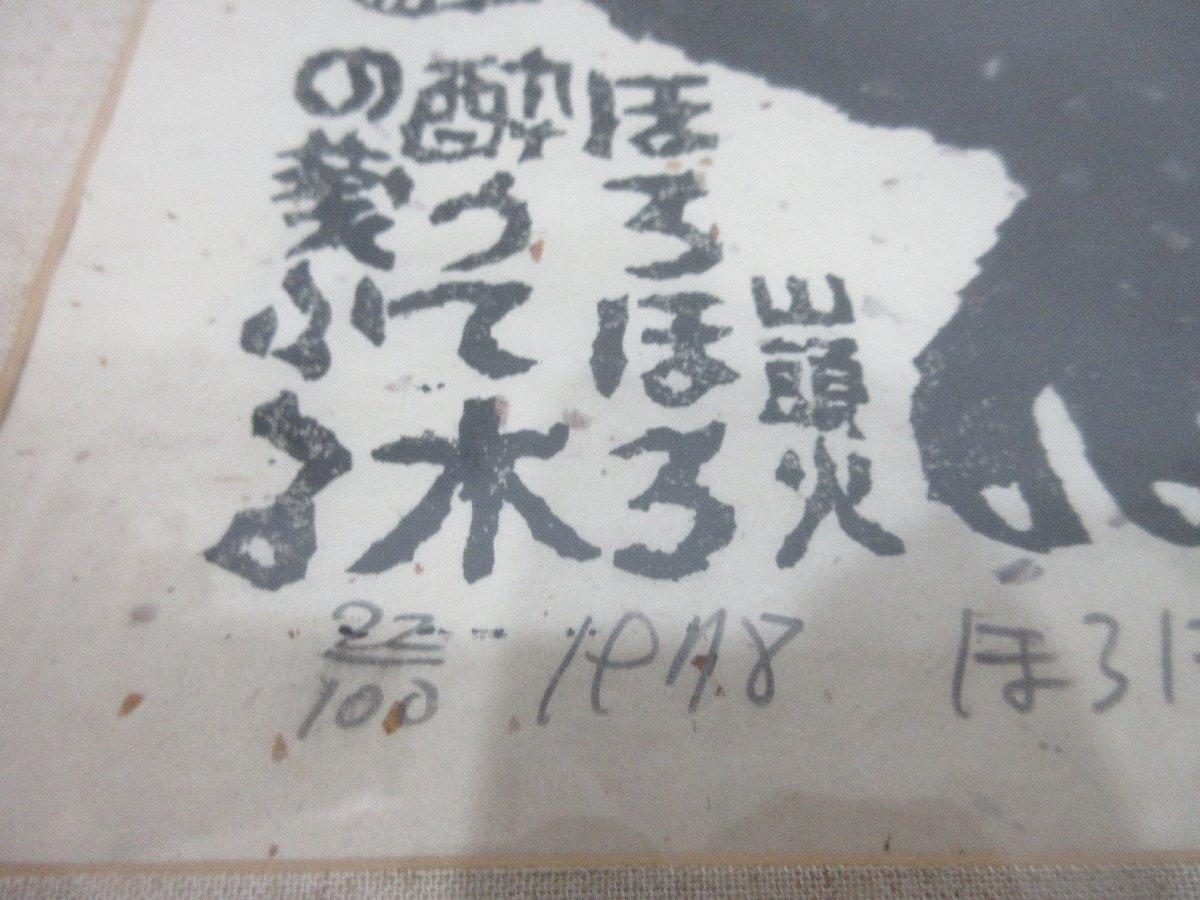 山頭火
ほろほろ
酔うて木
の葉ふる
22/100
1978
ほろほ